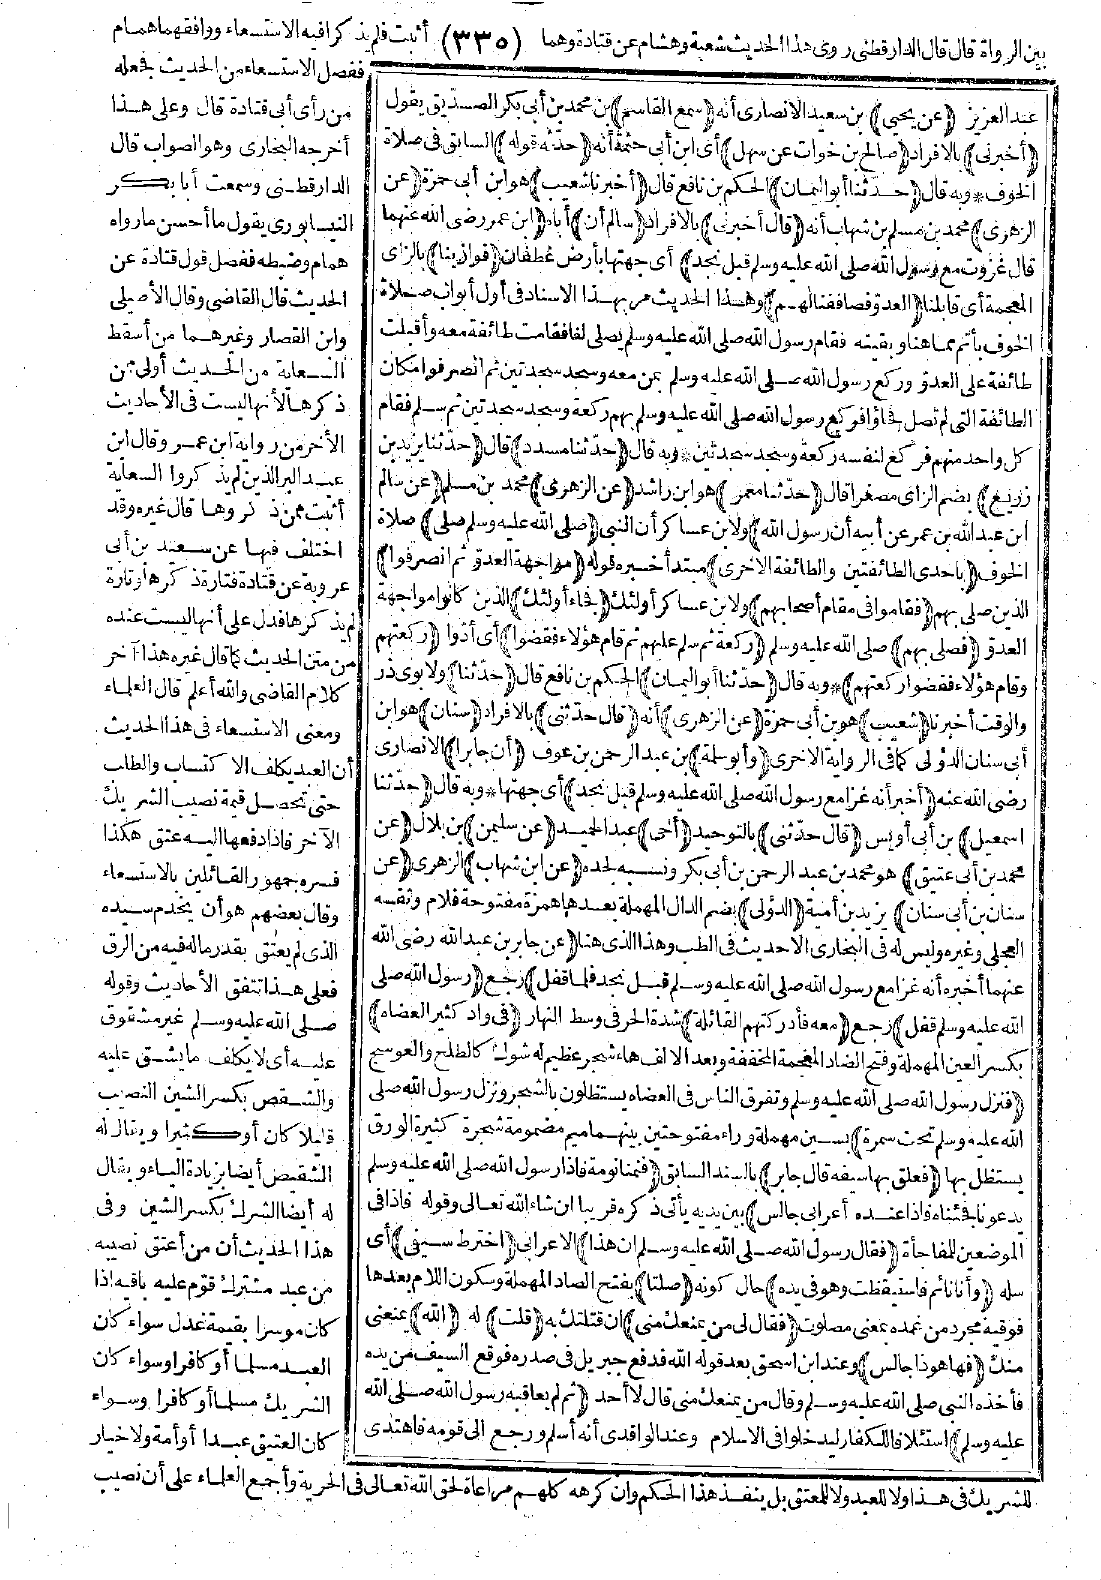 بين الرواة قال قال الدارقطنى روى هذا الحديث شعبة وهشام عن قتادة وهما (٣٣٥) أثبت فلم يذكرا فيه الاستسعاء ووافقهما همام
ففصل الاستسعاء من الحديث فجعله
من رأى أبى قتادة قال وعلى هذا
أخرجه البخارى وهو الصواب قال
الدارقطنى وسمعت أبا بكر
النيسابورى يقول ما أحسن ما رواه
همام وضبطه ففصل قول قتادة عن
الحديث قال القاضى وقال الأصيلى
وابن القصار وغيرهما من أسقط
السعاية من الحديث أولى ممن
ذكرها لأنها ليست فى الأحاديث
الأخر من رواية ابن عمر وقال ابن
عبد البر الذين لم يذكروا السعاية
أثبت ممن ذكروها قال غيره وقد
اختلف فيها عن سعيد بن أبى
عروبة عن قتادة فتارة ذكرها وتارة
لم يذكرها فدل على أنها ليست عنده
من متن الحديث كما قال غيره هذا آخر
كلام القاضى والله أعلم قال العلماء
ومعنى الاستسعاء فى هذا الحديث
أن العبد يكلف الاكتساب والطلب
حتى تحصل قيمة نصيب الشريك
الآخر فاذا دفعها اليه عتق هكذا
فسره جمهور القائلين بالاستسعاء
وقال بعضهم هو أن يخدم سيده
الذى لم يعتق بقدر ماله فيه من الرق
فعلى هذا تتفق الأحاديث وقوله
صلى الله عليه وسلم غير مشقوق
عليه أى لا يكلف ما يشق عليه
والشقص بكسر الشين النصيب
قليلا كان أو كثيرا ويقال له
الشقيص أيضا بزيادة الياء ويقال
له أيضا الشرك بكسر الشين وفى
هذا الحديث أن من أعتق نصيبه
من عبد مشترك قوم عليه باقيه اذا
كان موسرا بقيمة عدل سواء كان
العبد مسلما أو كافرا وسواء كان
الشريك مسلما أو كافرا وسواء
كان العتيق عبدا أو أمة ولا خيار
للشريك فى هذا ولا للعبد ولا للمعتق بل ينفذ هذا الحكم وان كرهه كلهم مراعاة لحق الله تعالى فى الحرية وأجمع العلماء على أن نصيب
عبد العزيز (عن يحيى) بن سعيد الانصارى أنه (سمع القاسم) بن محمد بن أبى بكر الصديق يقول
(أخبرنى) بالافراد (صالح بن خوات عن سهل) أى ابن أبى حثمة أنه (حدثه قوله) السابق فى صلاة
الخوف * وبه قال (حدثنا أبو اليمان) الحكم بن نافع قال (أخبرنا شعيب) هو ابن أبى حمزة (عن
الزهرى) محمد بن مسلم بن شهاب أنه (قال أخبرنى) بالافراد (سالم أن) أباه (ابن عمر رضى الله عنهما
قال غزوت مع رسول الله صلى الله عليه وسلم قبل نجد) أى جهتها بأرض غطفان (فوازينا) بالزاى
المعجمة أى قابلنا (العدو فصاففنا لهم) وهذا الحديث مر بهذا الاسناد فى أول أبواب صلاة
الخوف بأتم مما هنا وبقيته فقام رسول الله صلى الله عليه وسلم يصلى لنا فقامت طائفة معه وأقبلت
طائفة على العدو وركع رسول الله صلى الله عليه وسلم بمن معه وسجد سجدتين ثم انصرفوا مكان
الطائفة التى لم تصل فجاؤا فركع رسول الله صلى الله عليه وسلم بهم ركعة وسجد سجدتين ثم سلم فقام
كل واحد منهم فركع لنفسه ركعة وسجد سجدتين * وبه قال (حدثنا مسدد) قال (حدثنا يزيد بن
زريع) بضم الزاى مصغرا قال (حدثنا معمر) هو ابن راشد (عن الزهرى) محمد بن مسلم (عن سالم
ابن عبد الله بن عمر عن أبيه أن رسول الله) ولابن عساكر أن النبى (صلى الله عليه وسلم صلى) صلاة
الخوف (باحدى الطائفتين والطائفة الاخرى) مبتدأ خبره قوله (مواجهة العدو ثم انصرفوا)
الذين صلى بهم (فقاموا فى مقام أصحابهم) ولابن عساكر أولئك (فجاء أولئك) الذين كانوا مواجهة
العدو (فصلى بهم) صلى الله عليه وسلم (ركعة ثم سلم عليهم ثم قام هؤلاء فقضوا) أى أدوا (ركعتهم
وقام هؤلاء فقضوا ركعتهم) * وبه قال (حدثنا أبو اليمان) الحكم بن نافع قال (حدثنا) ولابوى ذر
والوقت أخبرنا (شعيب) هو بن أبى حمزة (عن الزهرى) أنه (قال حدثنى) بالافراد (سنان) هو ابن
أبى سنان الدؤلى كما فى الرواية الاخرى (وأبو سلمة) بن عبد الرحمن بن عوف (أن جابرا) الانصارى
رضى الله عنه (أخبر أنه غزا مع رسول الله صلى الله عليه وسلم قبل نجد) أى جهتها * وبه قال (حدثنا
اسمعيل) بن أبى أويس (قال حدثنى) بالتوحيد (أخى) عبد الحميد (عن سليمن) بن بلال (عن
محمد بن أبى عتيق) هو محمد بن عبد الرحمن بن أبى بكر ونسبه لجده (عن ابن شهاب) الزهرى (عن
سنان بن أبى سنان) يزيد بن أمية (الدؤلى) بضم الدال المهملة بعدها همزة مفتوحة فلام وثقه
العجلى وغيره وليس له فى البخارى الا حديث فى الطب وهذا الذى هنا (عن جابر بن عبد الله رضى الله
عنهما أخبره أنه غزا مع رسول الله صلى الله عليه وسلم قبل نجد فلما قفل) رجع (رسول الله صلى
الله عليه وسلم قفل) رجع (معه فأدركتهم القائلة) شدة الحر فى وسط النهار (فى واد كثير العضاه)
بكسر العين المهملة وفتح الضاد المعجمة المخففة وبعد الالف هاء شجر عظيم له شوك كالطلح والعوسج
(فنزل رسول الله صلى الله عليه وسلم وتفرق الناس فى العضاه يستظلون بالشجر ونزل رسول الله صلى
الله عليه وسلم تحت سمرة) بسين مهملة وراء مفتوحتين بينهما ميم مضمومة شجرة كثيرة الورق
يستظل بها (فعلق بها سيفه قال جابر) بالسند السابق (فنمنا نومة فاذا رسول الله صلى الله عليه وسلم
يدعونا فجئناه فاذا عنده أعرابى جالس) بين يديه يأتى ذكره قريبا ان شاء الله تعالى وقوله فاذا فى
الموضعين للمفاجأة (فقال رسول الله صلى الله عليه وسلم ان هذا) الاعرابى (اخترط سيفى) أى
سله (وأنا نائم فاستيقظت وهو فى يده) حال كونه (صلتا) بفتح الصاد المهملة وسكون اللام بعدها
فوقية مجرد من غمده بمعنى مصلوت (فقال لى من يمنعك منى) ان قتلتك به (قلت) له (الله) يمنعنى
منك (فها هو ذا جالس) وعند ابن اسحق بعد قوله الله فدفع جبريل فى صدره فوقع السيف من يده
فأخذه النبى صلى الله عليه وسلم وقال من يمنعك منى قال لا أحد (ثم لم يعاقبه رسول الله صلى الله
عليه وسلم) استئلافا للكفار ليدخلوا فى الاسلام وعند الواقدى أنه أسلم ورجع الى قومه فاهتدى